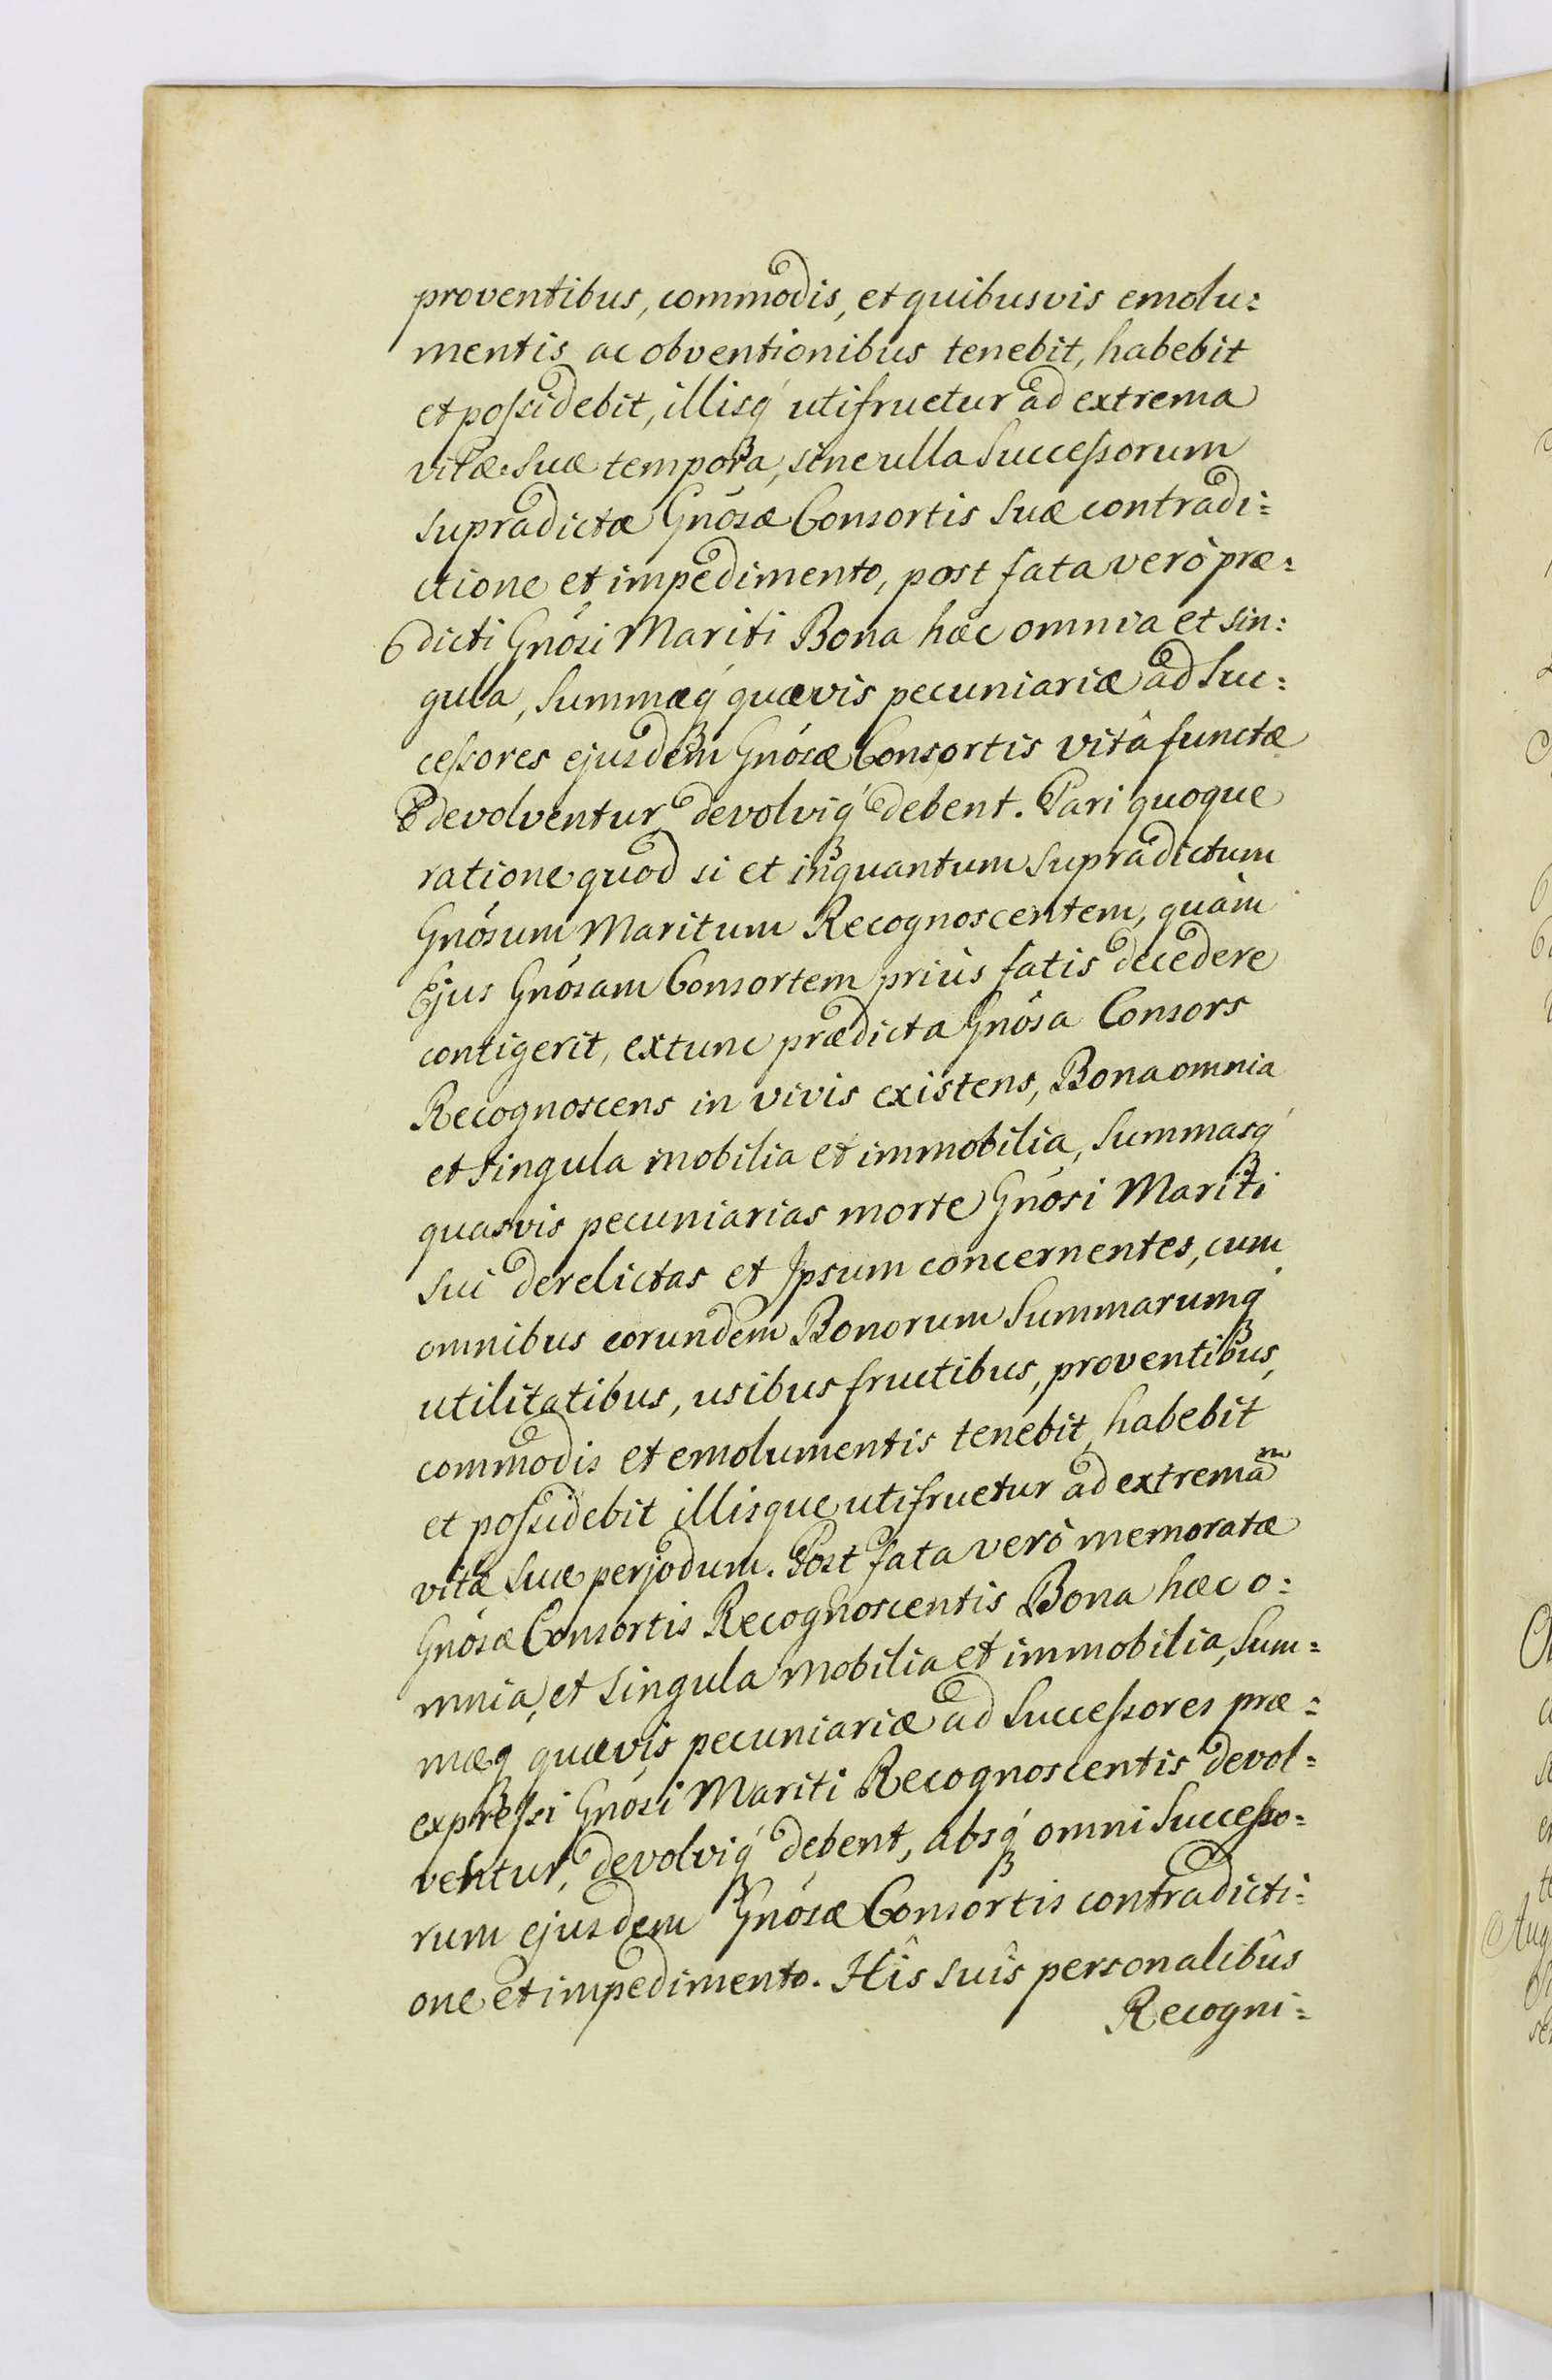 proventibus, commodis, et quibusvis emolu:
mentis ac obventionibus tenebit, habebit
et possidebit, illisq́ꝫ utifruetur ad extrema
vitæ suæ tempora, sine ulla Successorum
supradictæ Gnósæ Consortis suæ contradi:
ctione et impedimento, post fata verò præ:
dicti Gnósi Mariti Bona hæc omnia et sin:
gula, Summæq́ꝫ quævis pecuniariæ ad Suc:
cessores ejusdem Gnósæ Consortis vitâ functæ
devolventur devolviq́ꝫ debent. Pari quoque
ratione quod si et inquantum supradictum
Gnósum Maritum Recognoscentem, quàm
Ejus Gnósam Consortem priùs fatis decedere
contigerit, extunc prædicta Gnósa Consors
Recognoscens in vivis existens, Bona omnia
et singula mobilia et immobilia, Summasq́ꝫ
quasvis pecuniarias morte Gnósi Mariti
sui derelictas et Ipsum concernentes, cum
omnibus eorundem Bonorum Summarumq́ꝫ
utilitatibus, usibusfructibus, proventibus,
commodis et emolumentis tenebit, habebit
et possidebit illisque utifruetur ad extremaᵐ
vitæ suæ perjodum. Post fata verò memoratæ
Gnósæ Consortis Recognoscentis Bona hæc o:
mnia, et singula mobilia et immobilia, Sum:
mæqꝫ quævis pecuniariæ ad Successores præ:
expressi Gnósi Mariti Recognoscentis devol:
ventur, devolviq́ꝫ debent, absq́ꝫ omni Successo:
rum ejusdem Gnósæ Consortis contradicti:
one et impedimento. Hîs suîs personalibûs
Recogni: